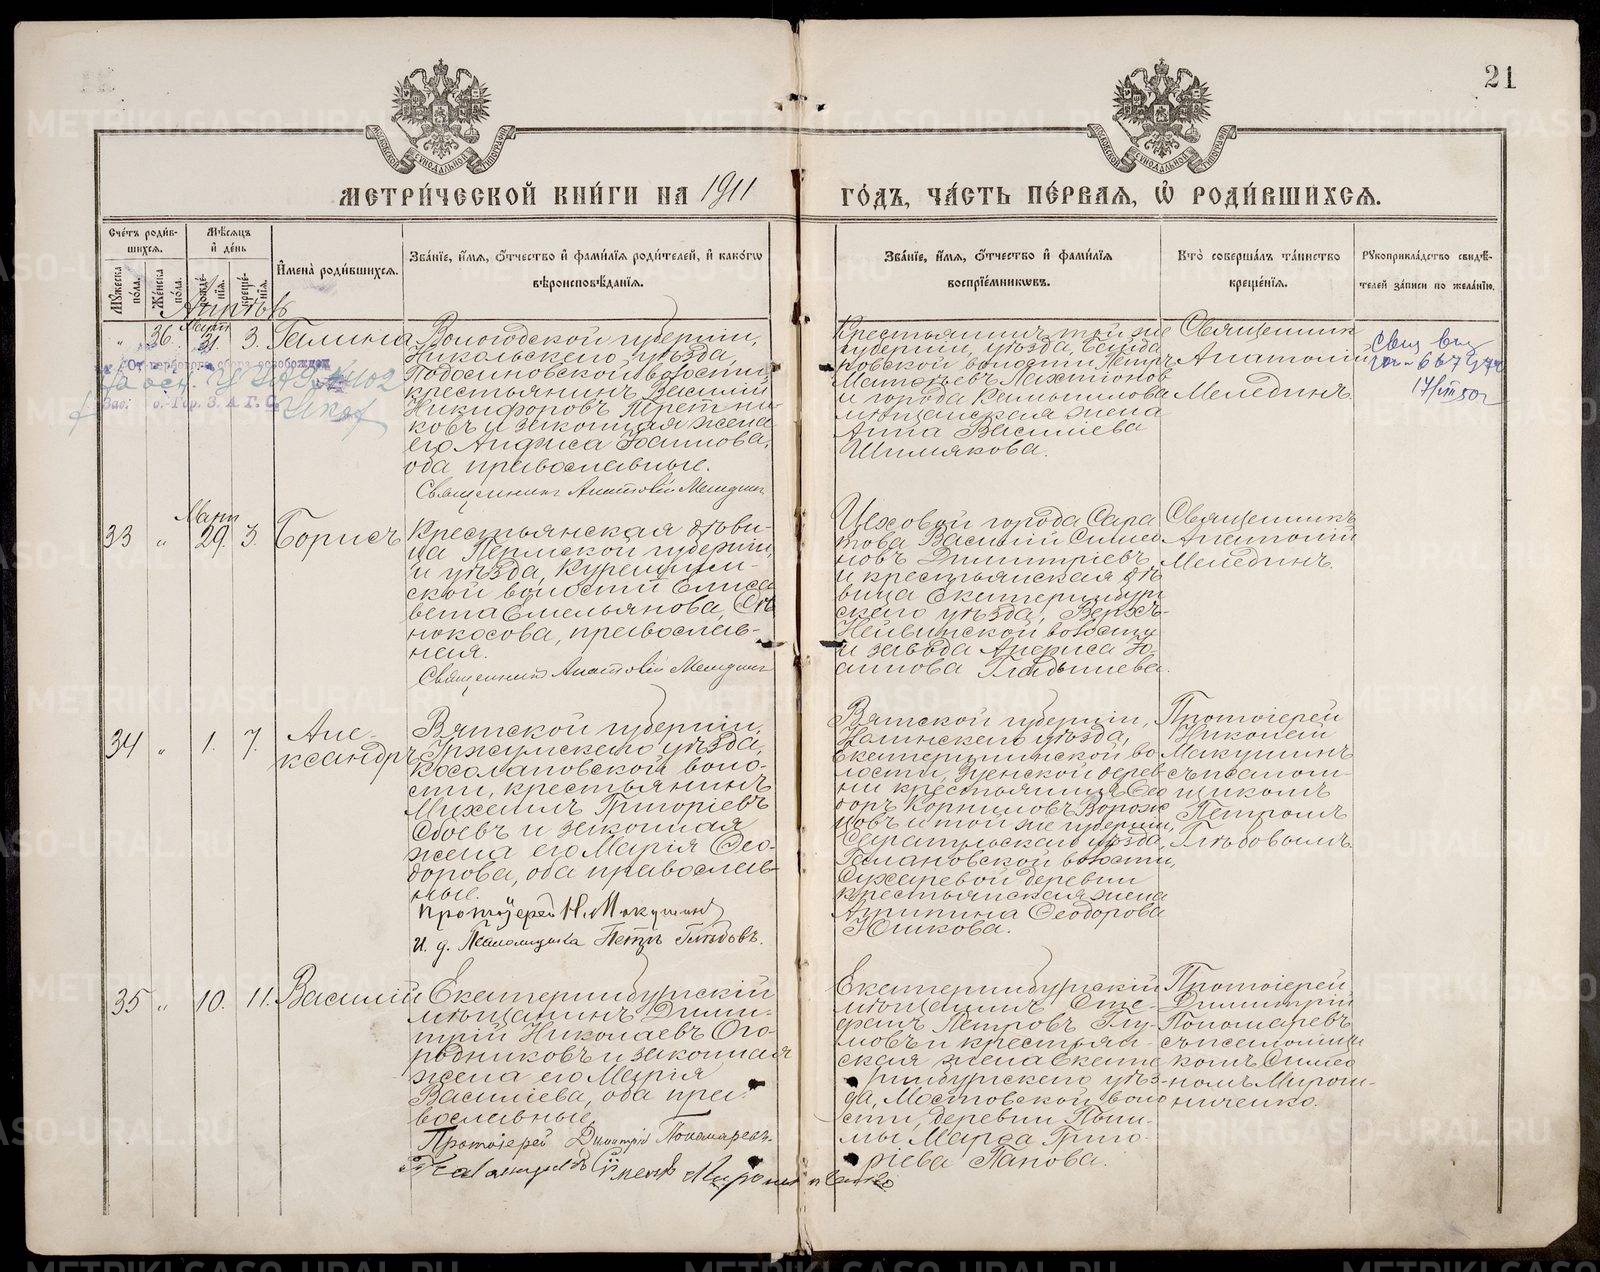 21
МЕТРИ́ЧЕСКОЙ КНИ́ГИ НА 1911 ГО́ДЪ, ЧА́СТЬ ПЕ́РВАЯ, Ѡ РОДИ́ВШИХСѦ.
Счётъ роди́вшихсѧ.
Мꙋ́жеска по́ла.
Же́нска по́ла.
Мѣ́сѧцъ и҆ де́нь
рожде́нїѧ.
креще́нїѧ.
И҆мена̀ роди́вшихсѧ.
Зва́нїе, и҆́мѧ, ѻ҆́тчество и҆ фами́лїѧ роди́телей, и҆ како́гѡ
вѣроисповѣ́данїѧ.
Зва́нїе, и҆́мѧ, ѻ҆́тчество и҆ фами́лїѧ
воспрїе́мникѡвъ.
Кто̀ соверша́лъ та́инство
креще́нїѧ.
Рꙋкоприкла́дство свидѣ́-
телей за́писи по жела́нїю.
Апрѣль
„ 36. Март 31. 3. Галина
Вологодской губерніи,
Никольскаго уѣзда,
Подосиновской волости,
крестьянинъ Василій
Никифоровъ Третни-
ковъ и законная жена
его Анфиса Іоаннова,
оба православные.
Священникъ Анатолій Мелединъ
Крестьянинъ той же
губерніи, уѣзда,
ковской волости Петръ
Матѳьевъ Лахтіонов
и города Камышлова
мѣщанская жена
Анна Василіева
Шимякова.
Священникъ
Анатолій
Мелединъ.
От гербового сбора освобожден
17/VIII 50г
33 „ Март 29. 3. Борисъ
Крестьянская дѣви-
ца Пермской губерніи,
и уѣзда,
ской волости Елиса
вета Емельянова, Сѣ
нокосова, православ-
ная.
Священникъ Анатолій Мелединъ
Цеховой города Сара
това Василій Симео
новъ Димитріевъ
и крестьянская дѣ
вица Екатеринбург
скаго уѣзда, Верхъ-
Нейвинской волости
и завода Анфиса Іо-
аннова Гладышева.
Священникъ
Анатолій
Мелединъ.
34 „ 1. 7. Але-
ксандръ
Вятской губерніи,
Уржумскаго уѣзда,
Косолаповской воло-
сти, крестьянинъ
Михаилъ Григоріевъ
Сбоевъ и законная
жена его Марія Ѳео-
дорова, оба православ-
ные.
Протоіерей Н. Макушинъ
и. д. Псаломщика Петръ Глѣбовъ.
Вятской губерніи,
Нолинскаго уѣзда,
Екатерининской во-
лости, Зуевской дерев-
ни крестьянинъ Ѳео
доръ Корниловъ Ворож
цовъ и той же губерніи,
Сарапульскаго уѣзда,
Галановской волости,
Сухаревой деревни
крестьянская жена
Агрипина Ѳеодорова
Юшкова.
Протоіерей
Николай
Макушинъ
съ псалом-
щикомъ
Петромъ
Глѣбовымъ.
35 „ 10. 11. Василій
Екатеринбургскій
мѣщанинъ Дими-
трій Николаевъ Ого-
родниковъ и законная
жена его Марія
Василіева, оба пра-
вославные.
Протоіерей Димитрій Пономаревъ
Псаломщикъ Симеонъ Мирошниченко
Екатеринбургскій
мѣщанинъ Сте-
фанъ Петровъ Глу-
мовъ и крестьян-
ская жена Екате
ринбургскаго уѣз-
да, Мостовской воло
сти, деревни Пыш-
мы Марѳа Григо-
ріева Панова.
Протоіерей
Димитрій
Пономаревъ
съ псаломщи
комъ Симео
номъ Мирош-
ниченко.
METRIKI.GASO-URAL.RU